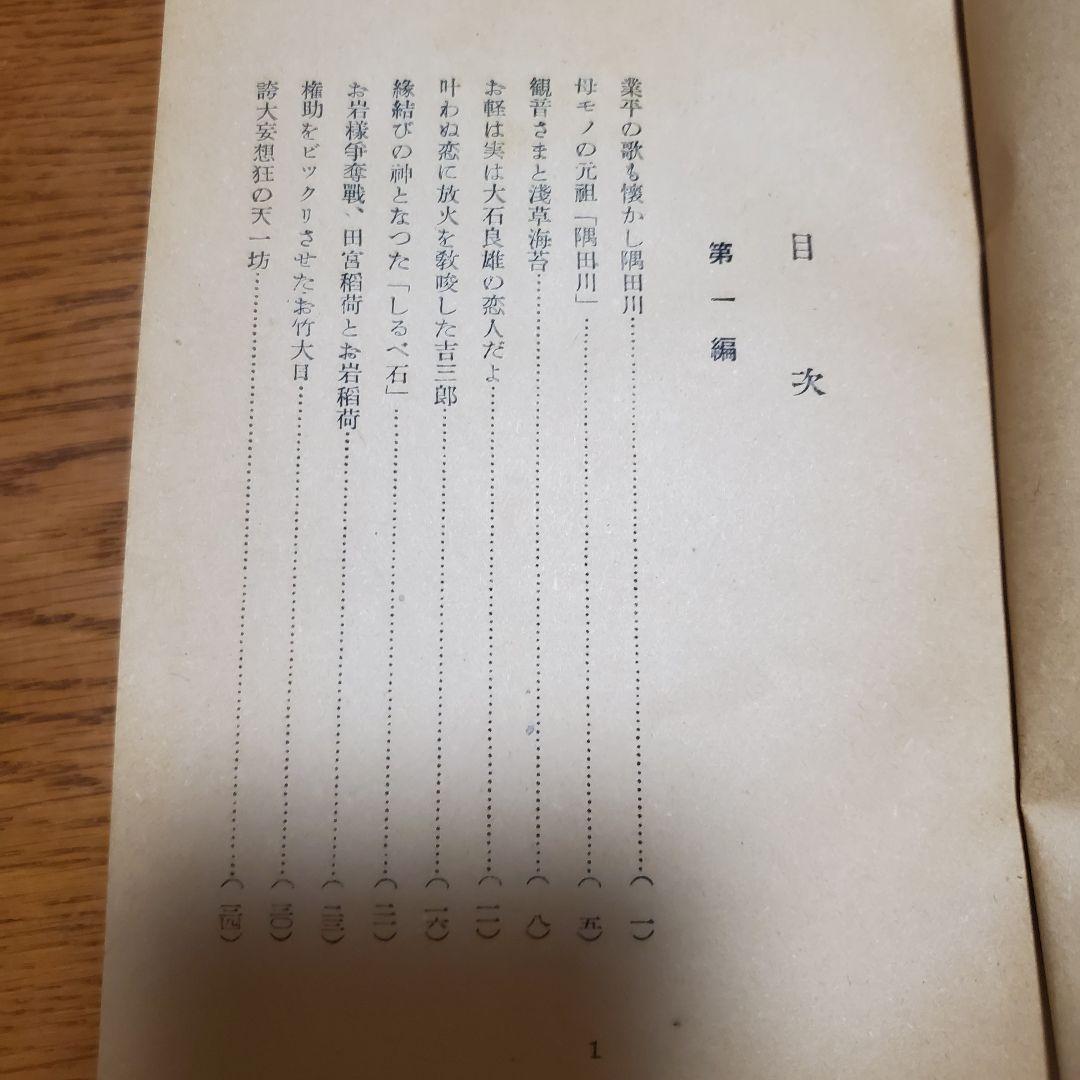 目次
第一編
業平の歌も懐かし隅田川………(一)
母モノの元祖「隅田川」………(五)
観音さまと淺草海苔………(八)
お軽は実は大石良雄の恋人だよ………(一一)
叶わぬ恋に放火を教唆した吉三郎………(一六)
縁結びの神となつた「しるべ石」………(二一)
お岩様争奪戰、田宮稲荷とお岩稲荷………(二三)
権助をビックリさせたお竹大日………(三〇)
誇大妄想狂の天一坊………(三四)
1